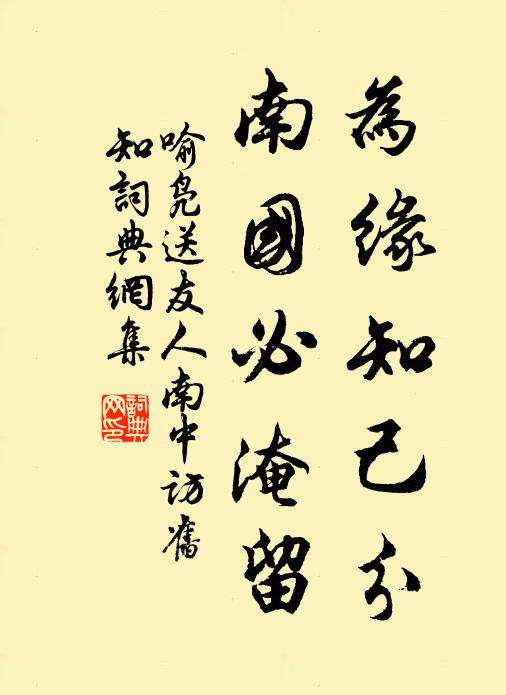 為緣知己分
南國必淹留
喻鳧送友人南中訪舊
知詞典網集
詞典網印